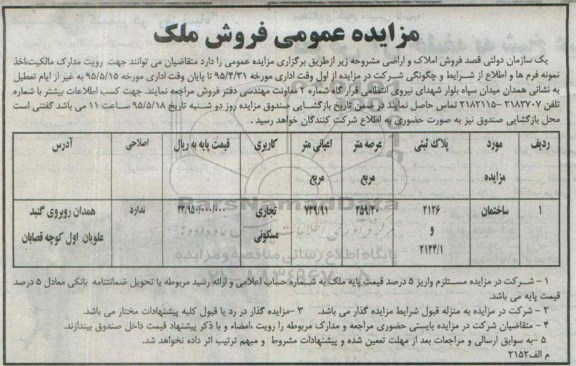 مزایده عمومی فروش ملک
یک سازمان دولتی قصد فروش املاک و اراضی مشروحه زیر ازطریق برگزاری مزایده عمومی را دارد متقاضیان می توانند جهت رویت مدارک مالکیت،اخذ
نمونه فرم ها و اطلاع از شرایط و چگونگی شرکت در مزایده از اول وقت اداری مورخه ۹۵/۴/۳۱ تا پایان وقت اداری مورخه ۹۵/۵/۱۵ به غیر از ایام تعطیل
به نشانی همدان میدان سپاه بلوار شهدای نیروی انتظامی قرار گاه شماره ۲ معاونت مهندسی دفتر فروش مراجعه نمایند. جهت کسب اطلاعات بیشتر با شماره
تلفن ۲۱۸۲۷۰۷ – ۲۱۸۲۱۱۵ تماس حاصل نمایند در ضمن تاریخ بازگشایی صندوق مزایده روز دو شنبه تاریخ ۹۵/۵/۱۸ ساعت ۱۱ می باشد گفتنی است
محل بازگشایی صندوق نیز به صورت حضوری به اطلاع شرکت کنندگان خواهد رسید .
ردیف مورد مزایده پلاک ثبتی عرصه متر مربع اعیانی متر مربع کاربری قیمت پایه به ریال اصلاحی آدرس
۱ ساختمان ۲۱۲۶ و ۲۱۲۴/۱ ۲۵۹/۲۰ ۷۳۹/۹۱ تجاری مسکونی ۲۴/۹۵۰/۰۰۰/۰۰۰ ندارد همدان روبروی گنبد علویان اول کوچه قصابان
ParsNamadData
پایگاه اطلاع رسانی مناقصه و مزایده
۱ – شرکت در مزایده مستلزم واریز ۵ درصد قیمت پایه ملک به شماره حساب اعلامی و ارائه رسید مربوطه یا تحویل ضمانتنامه بانکی معادل ۵ درصد
قیمت پایه می باشد.
۲ – شرکت در مزایده به منزله قبول شرایط مزایده گذار می باشد. ۳ –مزایده گذار در رد یا قبول کلیه پیشنهادات مختار می باشد.
۴ – متقاضیان شرکت در مزایده بایستی حضوری مراجعه و مدارک مربوطه را رویت ،امضاء و با ذکر پیشنهاد قیمت داخل صندوق بیندازند.
۵ –به سوابق ارسالی و مراجعات بعد از مهلت تعیین شده و پیشنهادات مشروط و مبهم ترتیب اثر داده نخواهد شد.
م الف۲۱۵۲